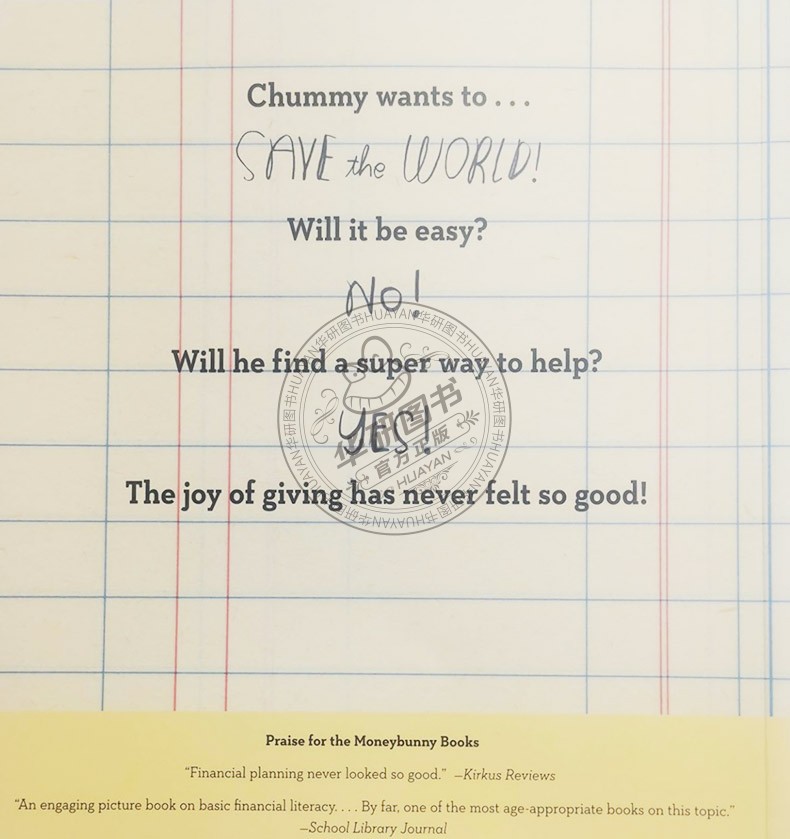 Chummy wants to . . .
SAVE the WORLD!
Will it be easy?
No!
Will he find a super way to help?
YES!
The joy of giving has never felt so good!
华研图书HUAYAN华研图书HUAYAN华研图书HUAYAN华研图书HUAYAN
华研图书
官方正版
HUAYAN
Praise for the Moneybunny Books
“Financial planning never looked so good.” —Kirkus Reviews
“An engaging picture book on basic financial literacy. . . . By far, one of the most age-appropriate books on this topic.”
—School Library Journal